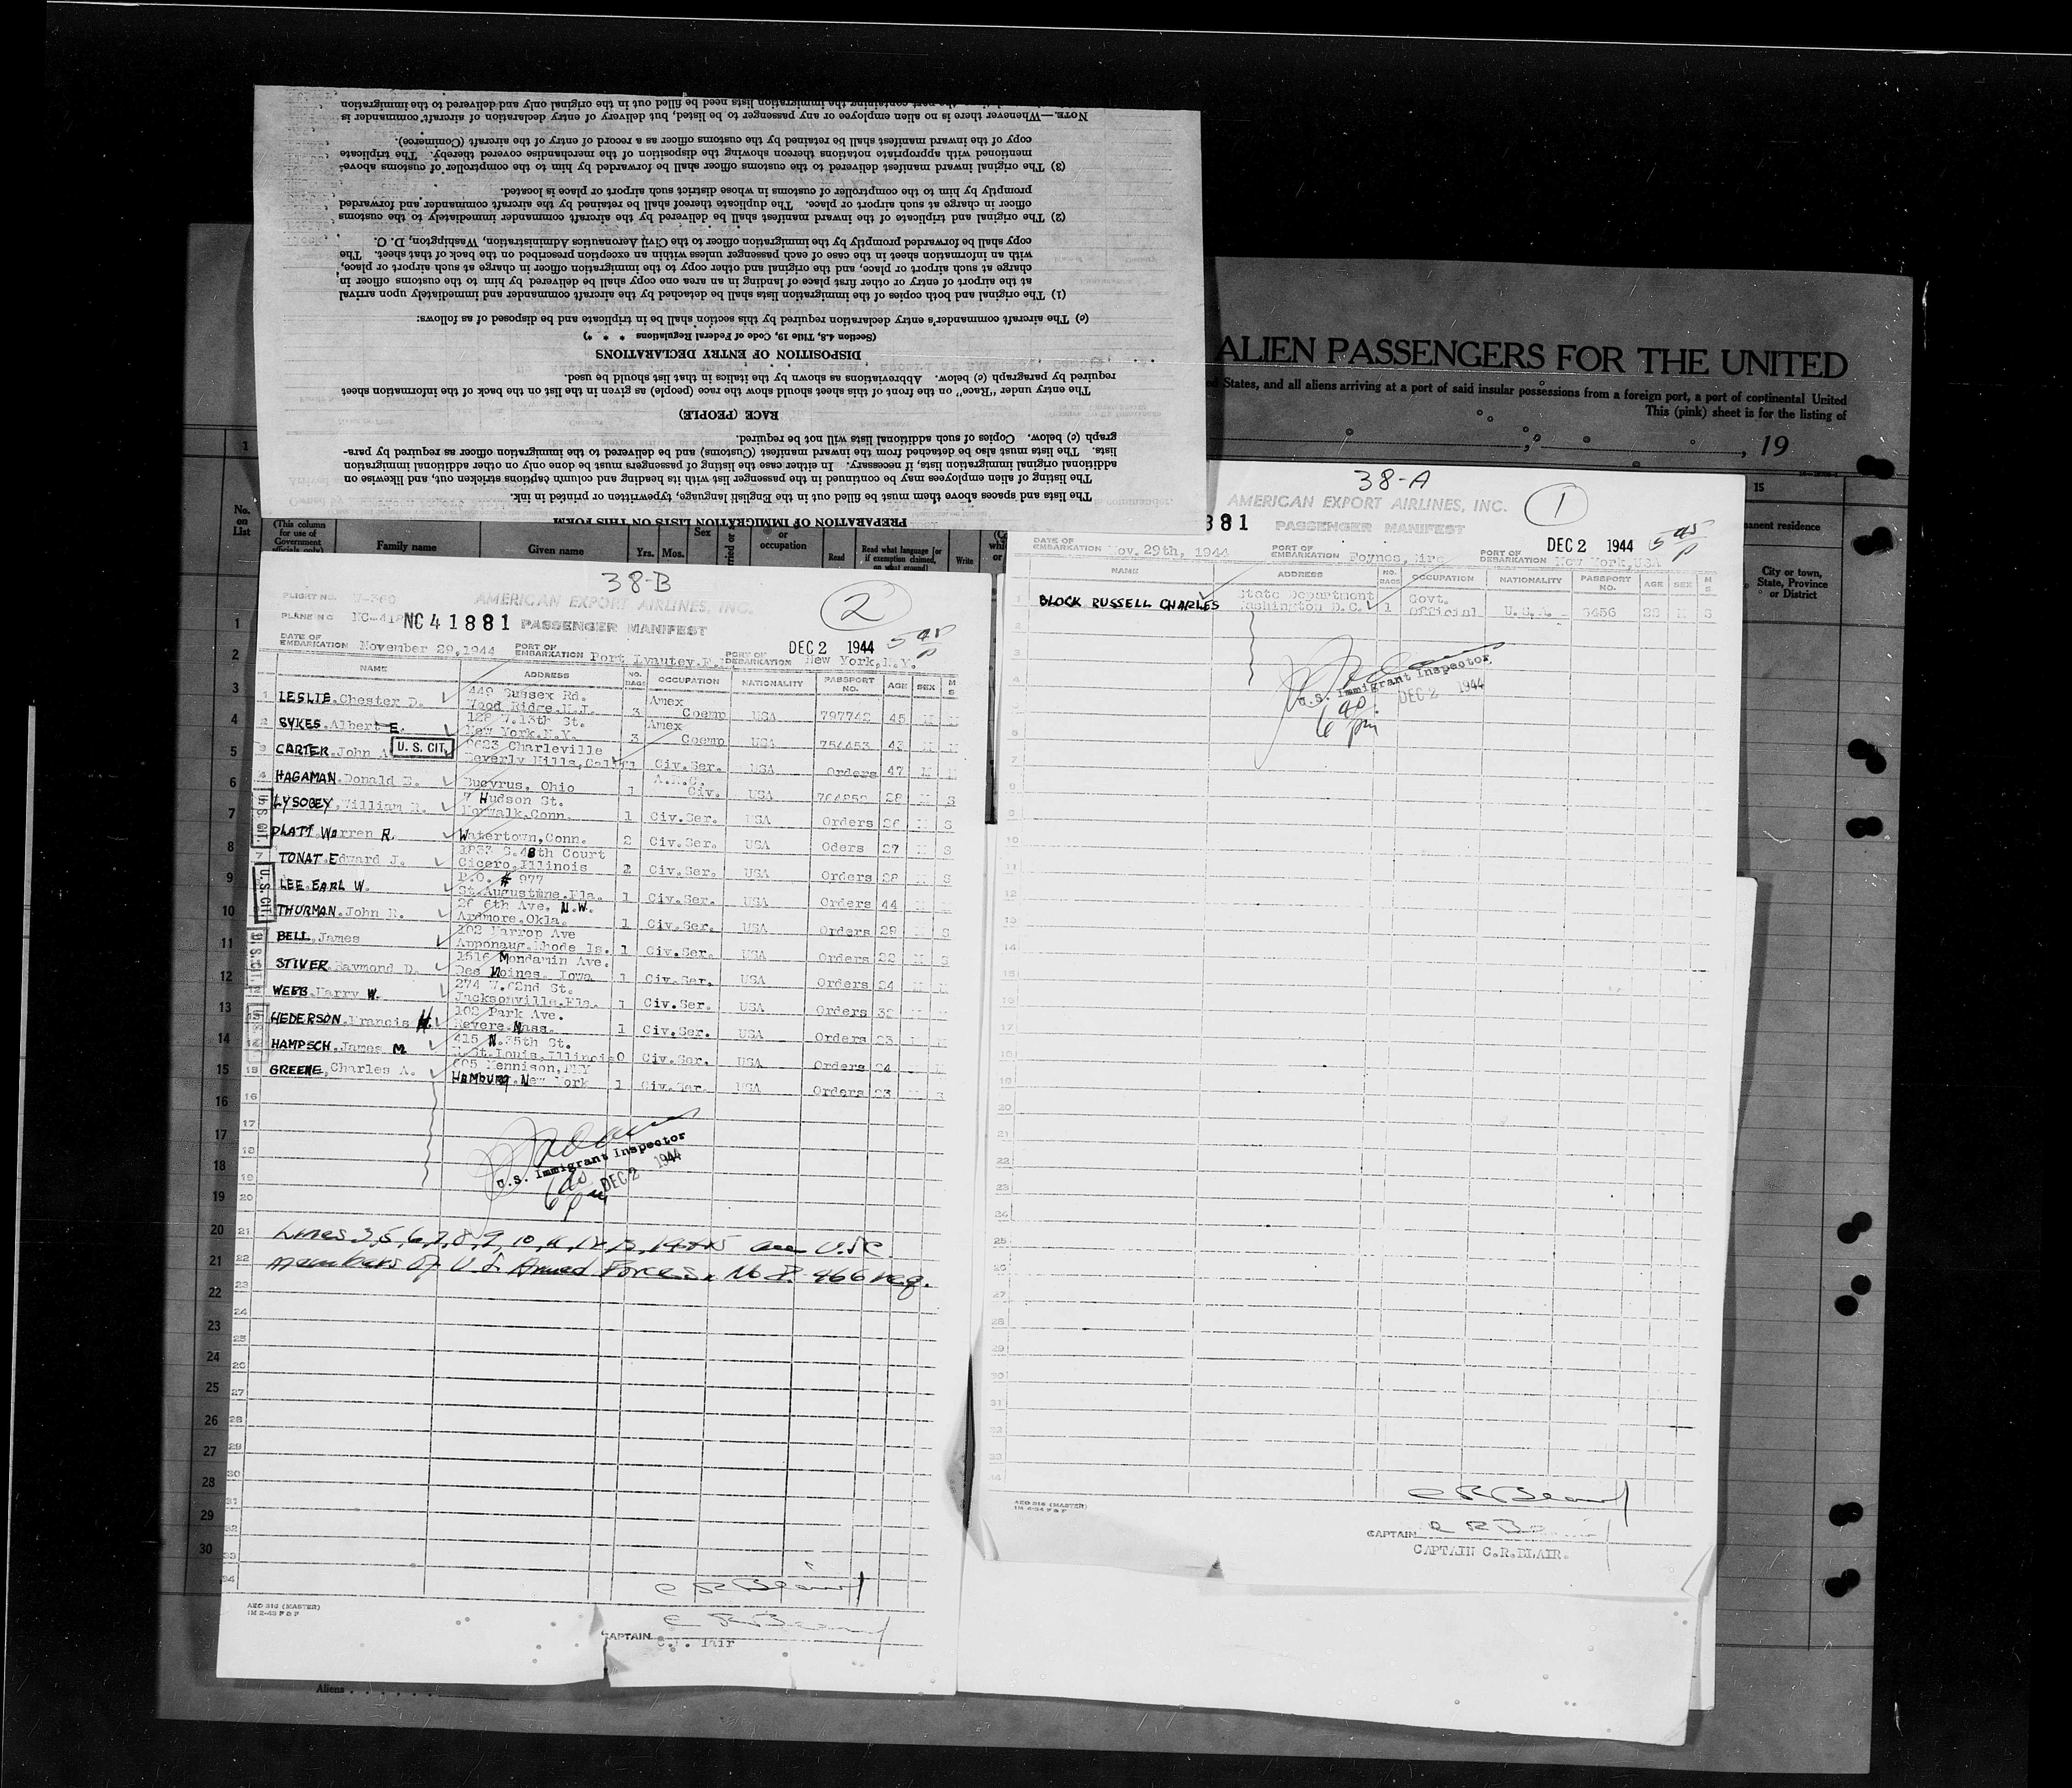 PREPARATION OF IMMIGRATION LISTS ON THIS FORM
The lists and spaces above them must be filled out in the English language, typewritten or printed in ink.
The listing of alien employees may be continued in the passenger list with its heading and column captions stricken out, and likewise on
additional original immigration lists, if necessary. In either case the listing of passengers must be done only on other additional immigration
lists. The lists must also be detached from the inward manifest (Customs) and be delivered to the immigration officer as required by para-
graph (c) below. Copies of such additional lists will not be required.
RACE (PEOPLE)
The entry under "Race" on the front of this sheet should show the race (people) as given in the list on the back of the information sheet
required by paragraph (c) below. Abbreviations as shown by the italics in that list should be used.
DISPOSITION OF ENTRY DECLARATIONS
(Section 4.8, Title 19, Code of Federal Regulations * * *)
(c) The aircraft commander's entry declaration required by this section shall be in triplicate and be disposed of as follows:
(1) The original and both copies of the immigration lists shall be detached by the aircraft commander and immediately upon arrival
at the airport of entry or other first place of landing in an area one copy shall be delivered by him to the customs officer in
charge at such airport or place, and the original and other copy to the immigration officer in charge at such airport or place,
with an information sheet in the case of each passenger unless within an exception prescribed on the back of that sheet. The
copy shall be forwarded promptly by the immigration officer to the Civil Aeronautics Administration, Washington, D. C.
(2) The original and triplicate of the inward manifest shall be delivered by the aircraft commander immediately to the customs
officer in charge at such airport or place. The duplicate thereof shall be retained by the aircraft commander and forwarded
promptly by him to the comptroller of customs in whose district such airport or place is located.
(3) The original inward manifest delivered to the customs officer shall be forwarded by him to the comptroller of customs above-
mentioned with appropriate notations thereon showing the disposition of the merchandise covered thereby. The triplicate
copy of the inward manifest shall be retained by the customs officer as a record of entry of the aircraft (Commerce).
NOTE.—Whenever there is no alien employee or any passenger to be listed, but delivery of entry declaration of aircraft commander is
containing the immigration lists need be filled out in the original only and delivered to the immigration
ALIEN PASSENGERS FOR THE UNITED
States, and all aliens arriving at a port of said insular possessions from a foreign port, a port of continental United
This (pink) sheet is for the listing of
, 19
1
15
No. on List
(This column for use of Government officials only)
Family name
Given name
Yrs. Mos.
Sex
or occupation
Read
Read what language [or if exemption claimed, on what ground]
Write
residence
City or town, State, Province or District
38-B
2
FLIGHT NO.
AMERICAN EXPORT AIRLINES, INC.
PLANE NO. NC41881 PASSENGER MANIFEST
DEC 2 1944 5 45/P
DATE OF EMBARKATION November 29, 1944 PORT OF EMBARKATION Port Lyautey, PORT OF DEBARKATION New York, N.Y.
NAME ADDRESS NO. BAGS OCCUPATION NATIONALITY PASSPORT NO. AGE SEX M S
1 LESLIE, Chester D. 449 Sussex Rd. Wood Ridge, N.J. 3 Amex Coemp USA 797742 45 M M
2 SYKES, Albert E. 128 W.13th St. New York, N.Y. 3 Amex Coemp USA 754453 43 M M
3 CARTER, John A U.S. CIT. 9623 Charleville Beverly Hills, Calif 1 Civ.Ser. USA Orders 47 M M
4 HAGAMAN, Donald Bucyrus, Ohio 1 A.R.C. Civ. USA 28 M S
LYSOBEY, William R. 7 Hudson St. Norwalk, Conn. 1 Civ.Ser. USA Orders 26 M S
PLATT Warren R. Watertown, Conn. 2 Civ.Ser. USA Oders 27 M S
7 TONAT, Edward J. 1837 S.48th Court Cicero, Illinois 2 Civ.Ser. USA Orders 28 M S
LEE EARL W. P.O. # 977 St.Augustine, Fla. 1 Civ.Ser. USA Orders 44
THURMAN, John R. 26 6th Ave. N.W. Ardmore, Okla. 1 Civ.Ser. USA Orders 29 M S
BELL, James 102 Harrop Ave Apponaug, Rhode Is. 1 Civ.Ser. USA Orders 22 M S
STIVER, Raymond D. 1516 Mondamin Ave. Des Moines, Iowa 1 Civ.Ser. USA Orders 24 M
12 WEBB, Harry W. 274 W.62nd St. Jacksonville, Fla. 1 Civ.Ser. USA Orders
HEDERSON, Francis H. 102 Park Ave. Revere, Mass. 1 Civ.Ser. USA Orders 23
14 HAMPSCH, James M 415 N.35th St. E.St. Louis, Illinois 0 Civ.Ser. USA Orders 24
15 GREENE, Charles A. Hamburg, New York 1 Civ.Ser. USA Orders 23 S
U.S. CIT.
U.S. CIT.
U.S. CIT.
U.S. Immigrant Inspector
6 40 pm DEC 2 1944
Lines 3,5,6,7,8,9,10,11,12,13,14 & 15 are USC
members of U.S. Armed Forces. No P. 466 req.
AEO 316 (MASTER)
CAPTAIN
Aliens
38-A
1
AMERICAN EXPORT AIRLINES, INC.
881 PASSENGER MANIFEST
DEC 2 1944 5 45/P
DATE OF EMBARKATION Nov. 29th, 1944 PORT OF EMBARKATION Foynes, Eire PORT OF DEBARKATION New York, USA
NAME ADDRESS NO. BAGS OCCUPATION NATIONALITY PASSPORT NO. AGE SEX M S
1 BLOCK RUSSELL CHARLES State Department Washington D.C. 1 Govt. Official U.S.A. M S
U.S. Immigrant Inspector
DEC 2 1944
6 40 pm
AEO 316 (MASTER)
CAPTAIN
CAPTAIN C.R.BLAIR.